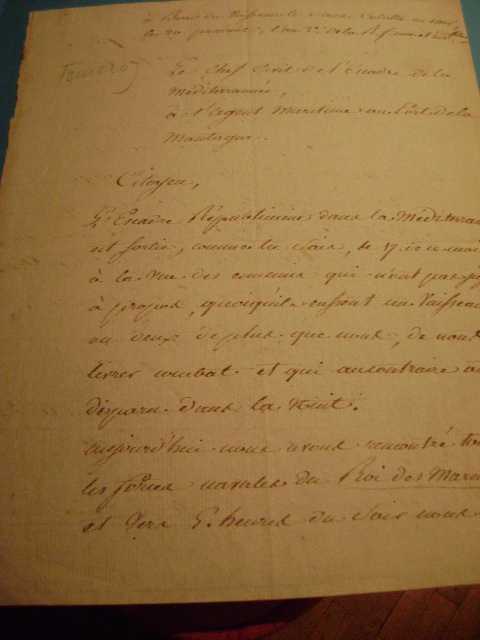 à Bord du Vaisseau le Sans Culotte en mer
les 30 prairial, l'an 3e de la R. f. une et ind.ble
Fourcroy
Le Chef Civil de l'Escadre de la
Méditerrannée,
à l'agent Maritime au Port de la
Montagne.
Citoyen,
L'Escadre Républicaine dans la Méditerra
est sortie, comme tu sais, le 17 de ce mois
à la vue des ennemis qui n'ont pas jug
à propos, quoiqu'ils eussent un Vaisseau
ou deux de plus que nous, de nous
livrer combat et qui au contraire on
disparu dans la Nuit.
aujourd'hui nous avons rencontré tou
les forces navales du Roi des Marm
et vers 5 heures du Soir nous